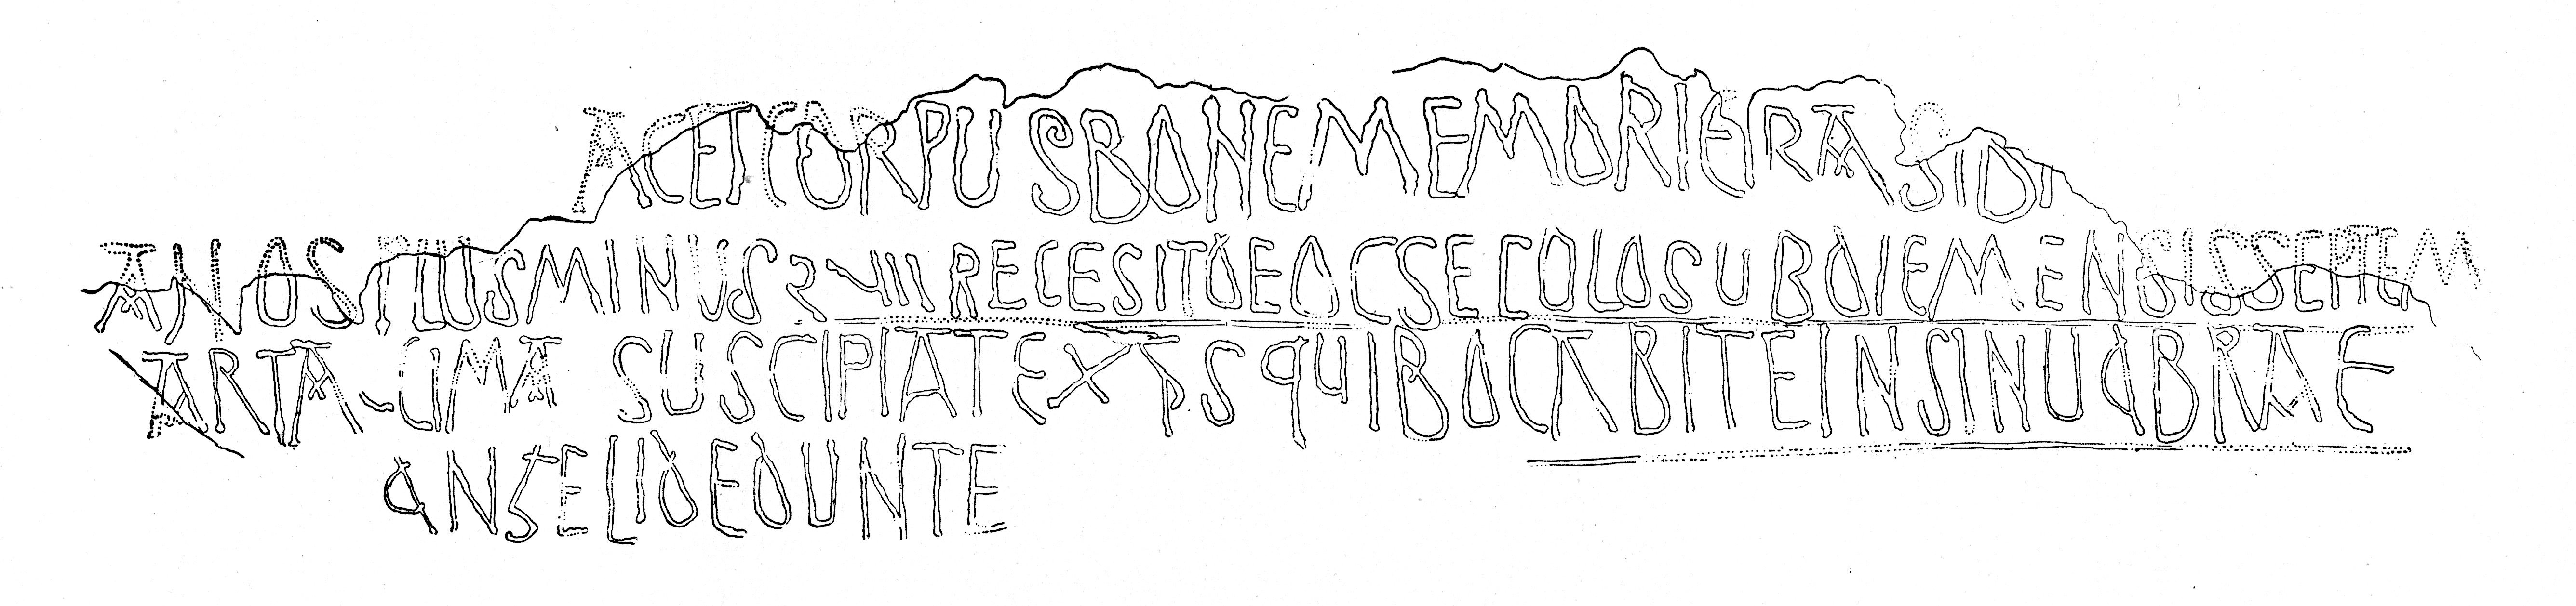 ACET CORPUS BONE MEMORIE
ANOS PLUS MINUS RECESIT DE OC SECOLO SUB DIE MENSIS SEPTEM
SUSCIPIAT E XPS QUI BOCABIT E IN SINU ABRAE
ANGELI DEDUNTE